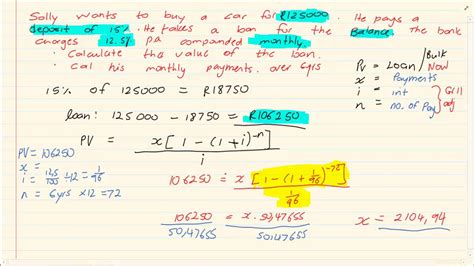 Sally wants to buy a car for R125000. He pays a
deposit of 15%. He takes a loan for the Balance. The bank
charges 12.5% p.a compounded monthly.
· Calculate the value of the loan.
· Cal his monthly payments over 6yrs
PV = Loan/Bulk
Now
x = Payments
i = int
n = no. of Pay
adj
15% of 125000 = R18750
loan: 125 000 - 18750 = R106250
PV = x[1 - (1+i)^-n] / i
PV = 106250
x =
i = 12,5/100 ÷ 12 = 1/96
n = 6yrs × 12 = 72
106250 = x[1 - (1 + 1/96)^-72] / (1/96)
106250 / 50,47655 = x . 50,47655 / 50,47655
x = 2104,94